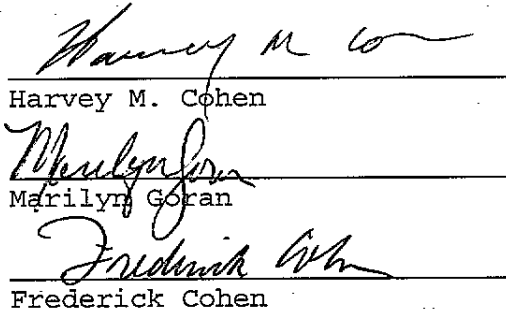 Harvey M Co
Harvey M. Cohen
Marilyn Goran
Marilyn Goran
Frederick Cohen
Frederick Cohen